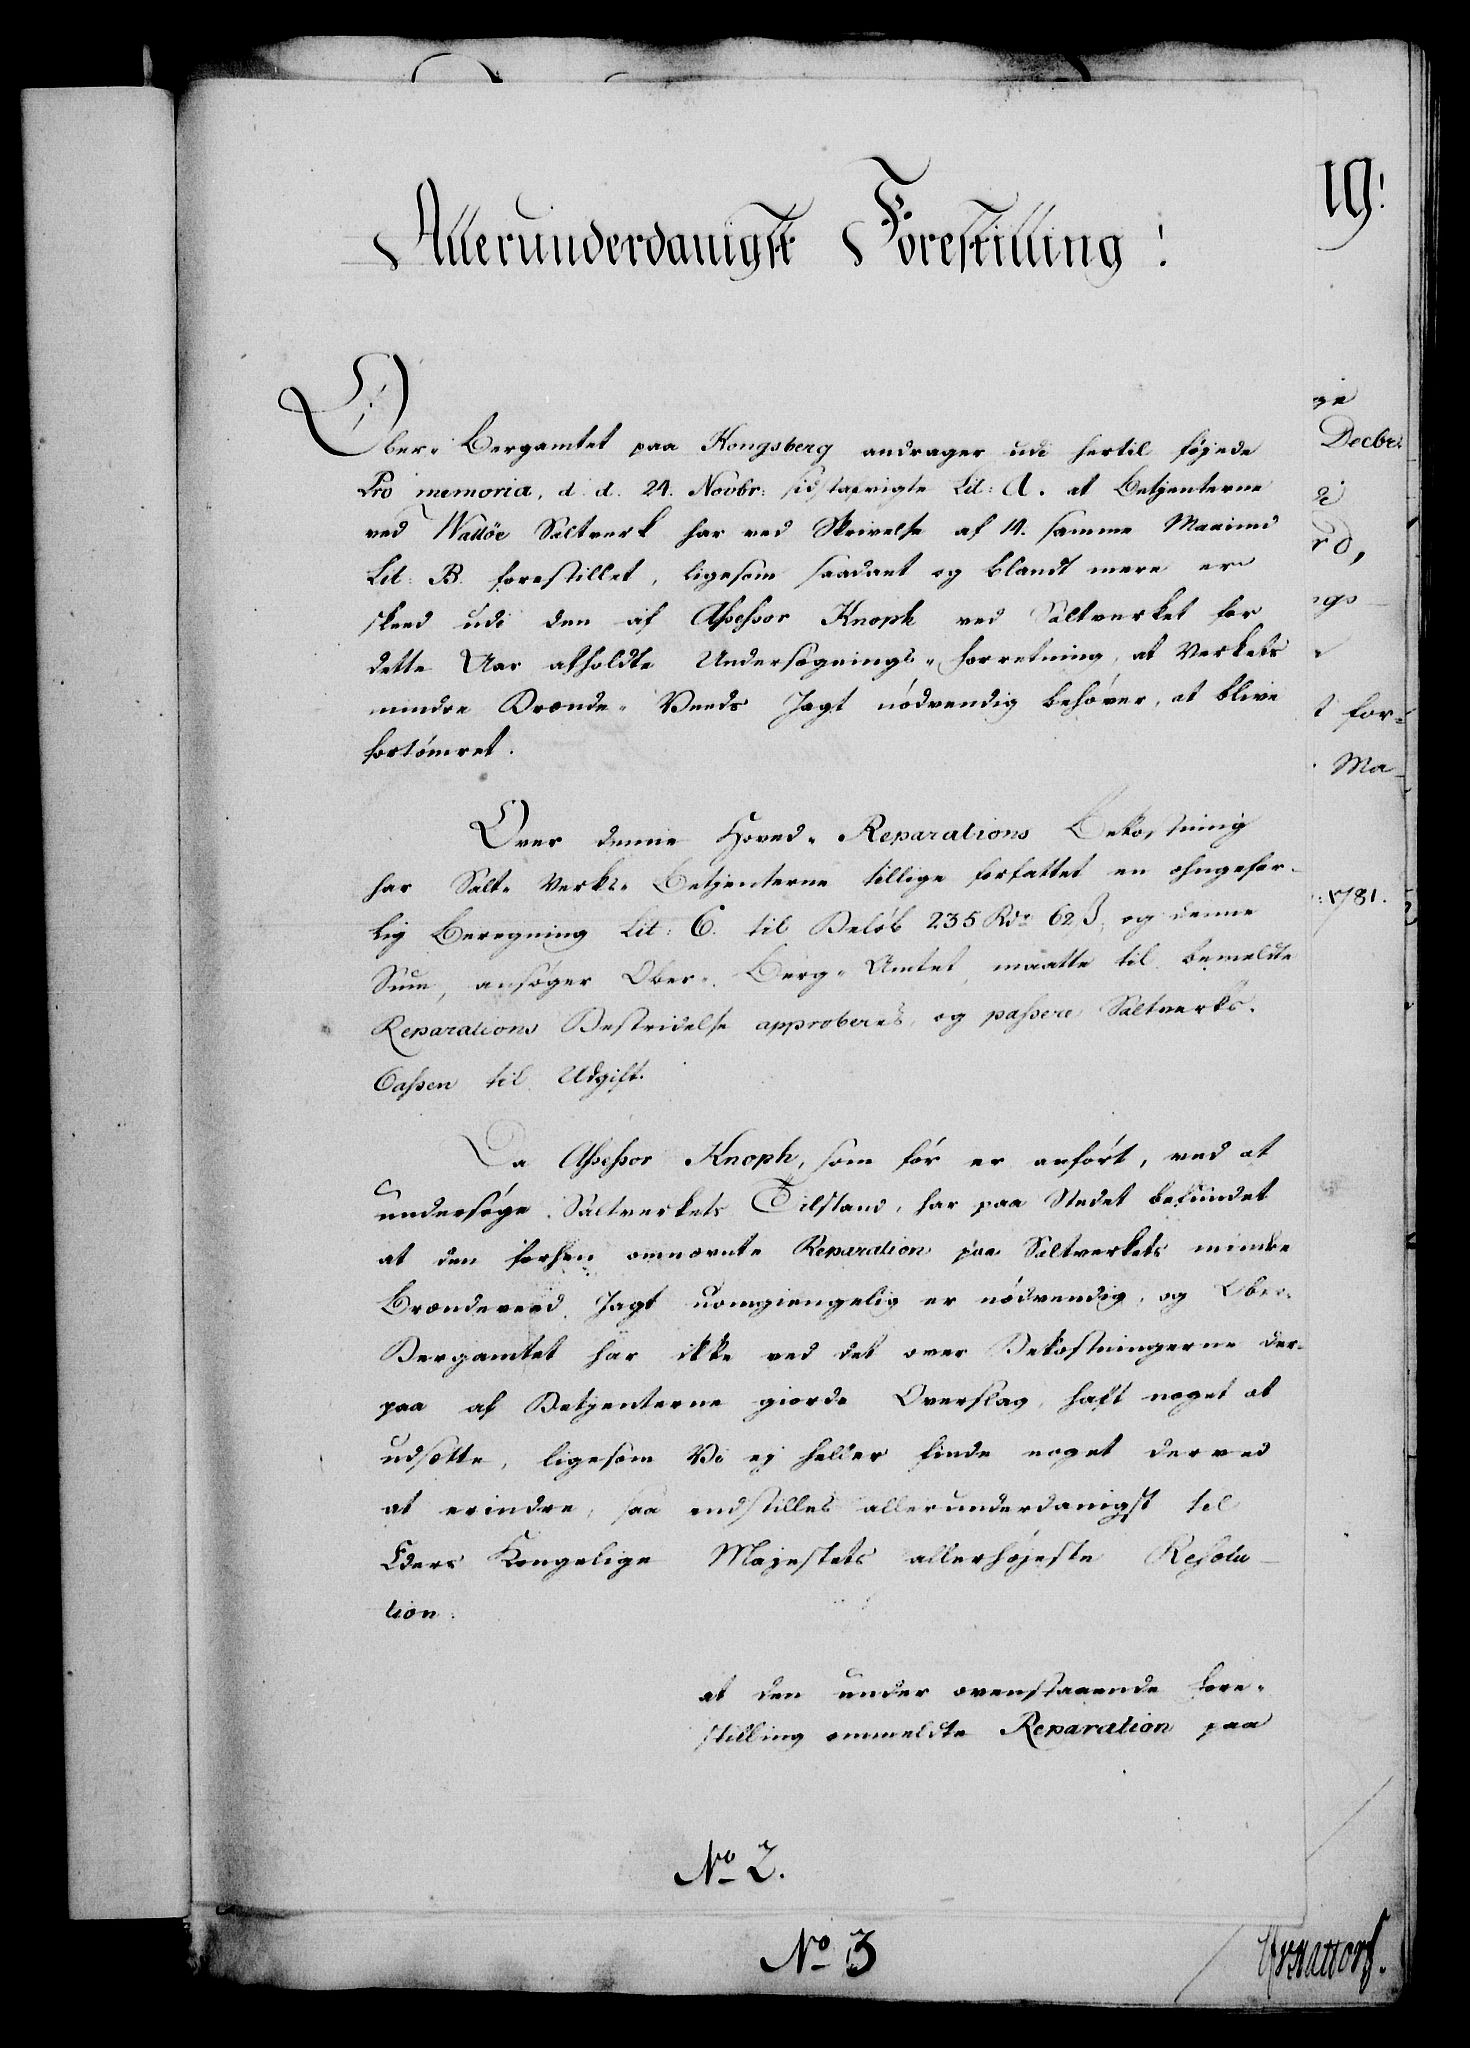 Allerunderdanigst Forestilling!
Ober- Bergamtet paa Kongsberg andrager udi hertil føjede
Pro memoria, d. d. 24. Novbr: sidstafvigte Lit: A. at Betjenterne
ved Walløe Saltverk har ved Skrivelse af 14. samme Maaned
Lit: B. forestillet, ligesom saadant og blandt mere er
skeed udi den af Assessor Knoph ved Saltverket for
dette Aar afholdte Undersøgnings-forretning, at Verkets
mindre Brænde-Veeds Jagt nødvendig behøver, at blive
fortømret.
Over denne Hoved-Reparations Bekostning
har Salt-Verks-Betjenterne tillige forfattet en ohngefær-
lig Beregning Lit: C. til Beløb 235 Rdr 62 ß, og denne
Sum, ansøger Ober-Berg-Amtet maatte til bemeldte
Reparations Bestridelse approberes, og passere Saltverks-
Cassen til Udgift.
Da Assessor Knoph, som før er anført, ved at
undersøge Saltverkets Tilstand, har paa Stedet befundet
at den forhen omnævnte Reparation paa Saltverkets mindre
Brændeveed Jagt uomgiengelig er nødvendig, og Ober-
Bergamtet har ikke ved det over Bekostningerne der-
paa af Betjenterne giorde Overslag, haft noget at
udsætte, ligesom Vi ej heller finde noget derved
at erindre, saa indstilles allerunderdanigst til
Eders Kongelige Majestets allerhøjeste Resolu-
tion:
at den under ovenstaaende Fore-
stilling ommeldte Reparation paa
No 2.
No 3
19!
Decbr:
for-
Ma-
1781.